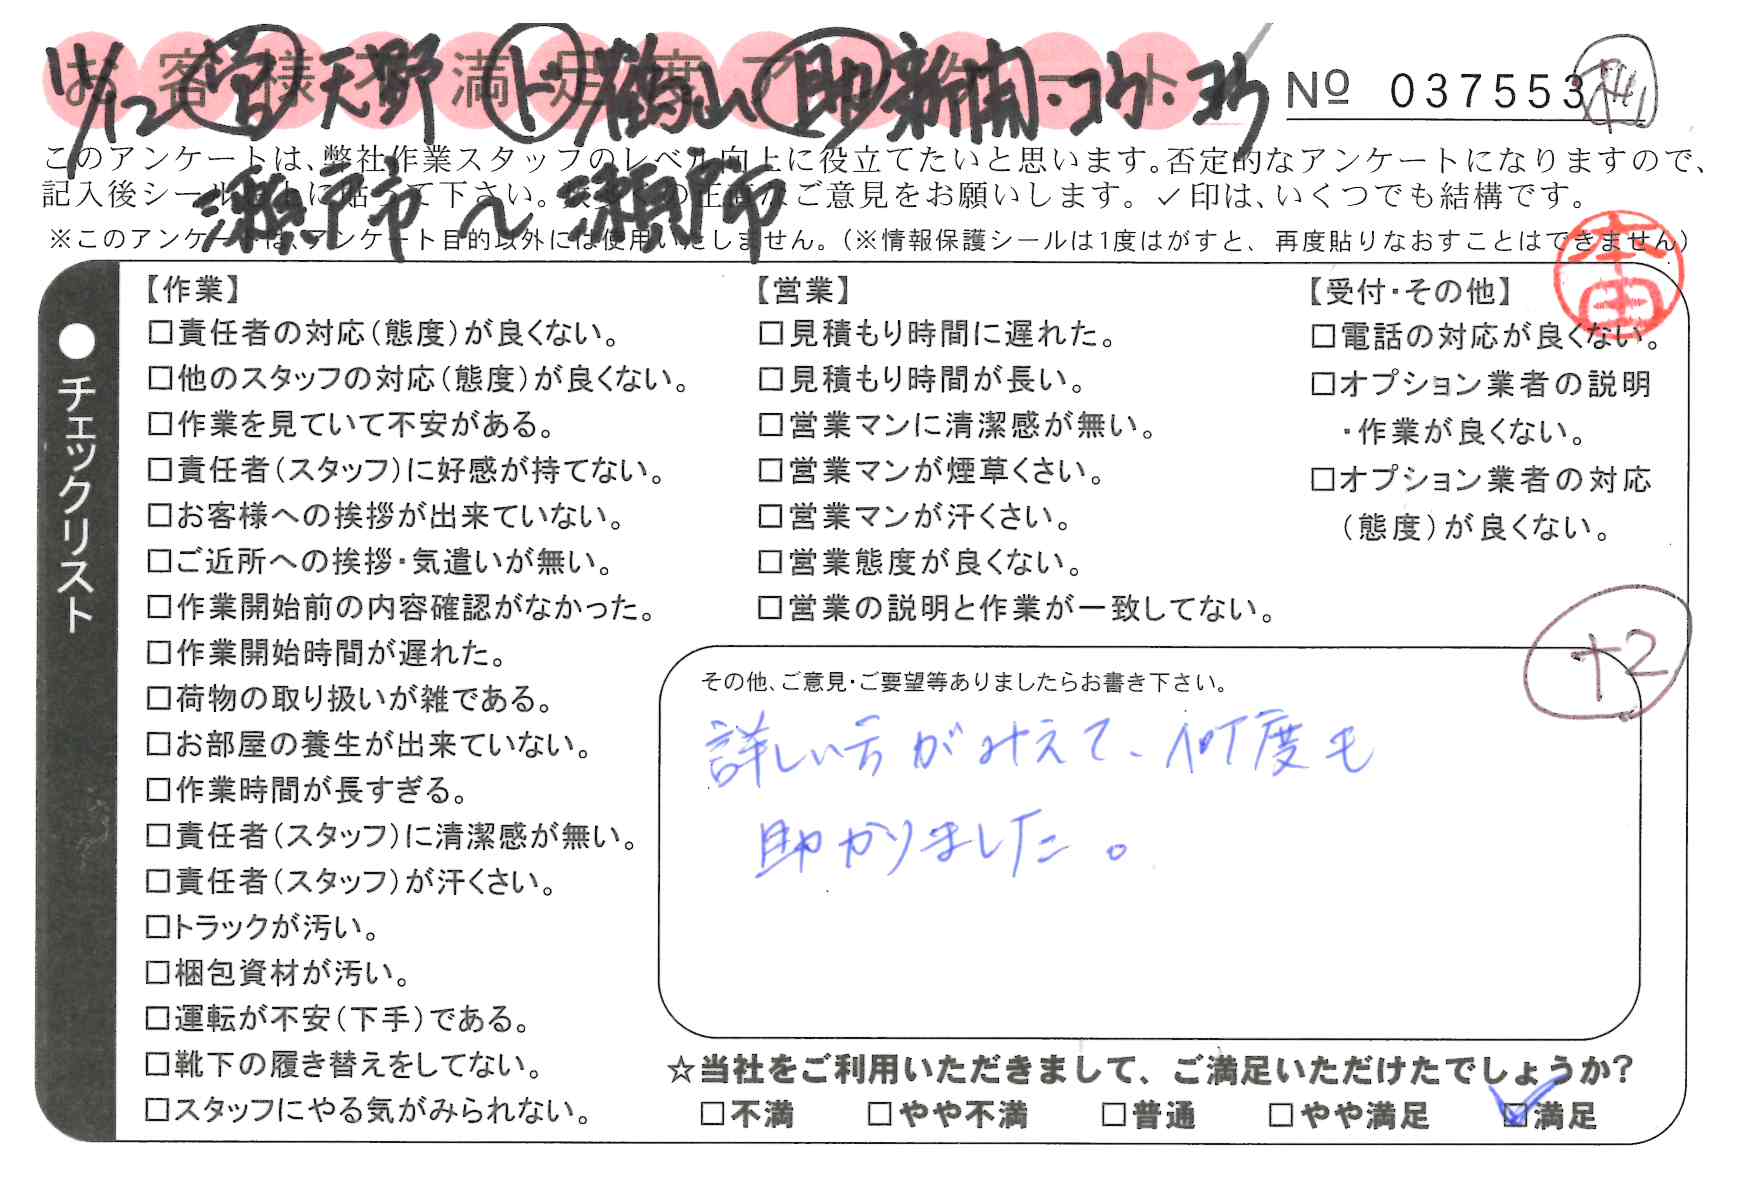 お客様不満足度アンケート
11/12 営 天野 ド 鶴山 助 新開・コウ・ヨウ
No 037553
このアンケートは、弊社作業スタッフのレベル向上に役立てたいと思います。否定的なアンケートになりますので、
記入後シールを上に貼って下さい。数多くの正直なご意見をお願いします。✓印は、いくつでも結構です。
瀬戸市〜瀬戸市
※このアンケートは、アンケート目的以外には使用いたしません。(※情報保護シールは1度はがすと、再度貼りなおすことはできません)
本田
●チェックリスト
【作業】
□責任者の対応(態度)が良くない。
□他のスタッフの対応(態度)が良くない。
□作業を見ていて不安がある。
□責任者(スタッフ)に好感が持てない。
□お客様への挨拶が出来ていない。
□ご近所への挨拶・気遣いが無い。
□作業開始前の内容確認がなかった。
□作業開始時間が遅れた。
□荷物の取り扱いが雑である。
□お部屋の養生が出来ていない。
□作業時間が長すぎる。
□責任者(スタッフ)に清潔感が無い。
□責任者(スタッフ)が汗くさい。
□トラックが汚い。
□梱包資材が汚い。
□運転が不安(下手)である。
□靴下の履き替えをしてない。
□スタッフにやる気がみられない。
【営業】
□見積もり時間に遅れた。
□見積もり時間が長い。
□営業マンに清潔感が無い。
□営業マンが煙草くさい。
□営業マンが汗くさい。
□営業態度が良くない。
□営業の説明と作業が一致してない。
【受付・その他】
□電話の対応が良くない。
□オプション業者の説明
・作業が良くない。
□オプション業者の対応
(態度)が良くない。
+2
その他、ご意見・ご要望等ありましたらお書き下さい。
詳しい方がみえて、何度も
助かりました。
☆当社をご利用いただきまして、ご満足いただけたでしょうか?
□不満 □やや不満 □普通 □やや満足 ☑満足